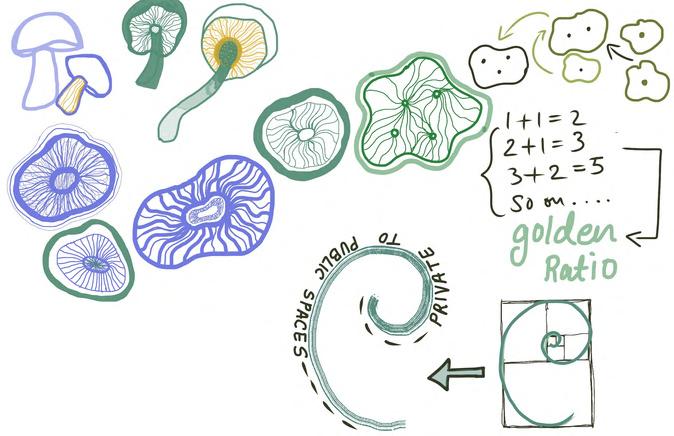 1+1=2
2+1=3
3+2=5
So on....
golden
Ratio
PRIVATE TO PUBLIC SPACES